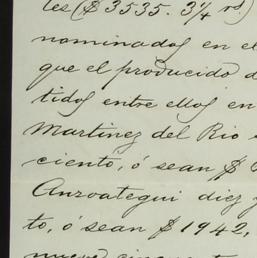 tes ($3535. 3¼ rs.)
nominados en el
que el producido d
tidos entre ellos en
Martinez del Rio
ciento, ó sean $
Anzoategui diez y
to, ó sean $1942,
nueve cincuenta